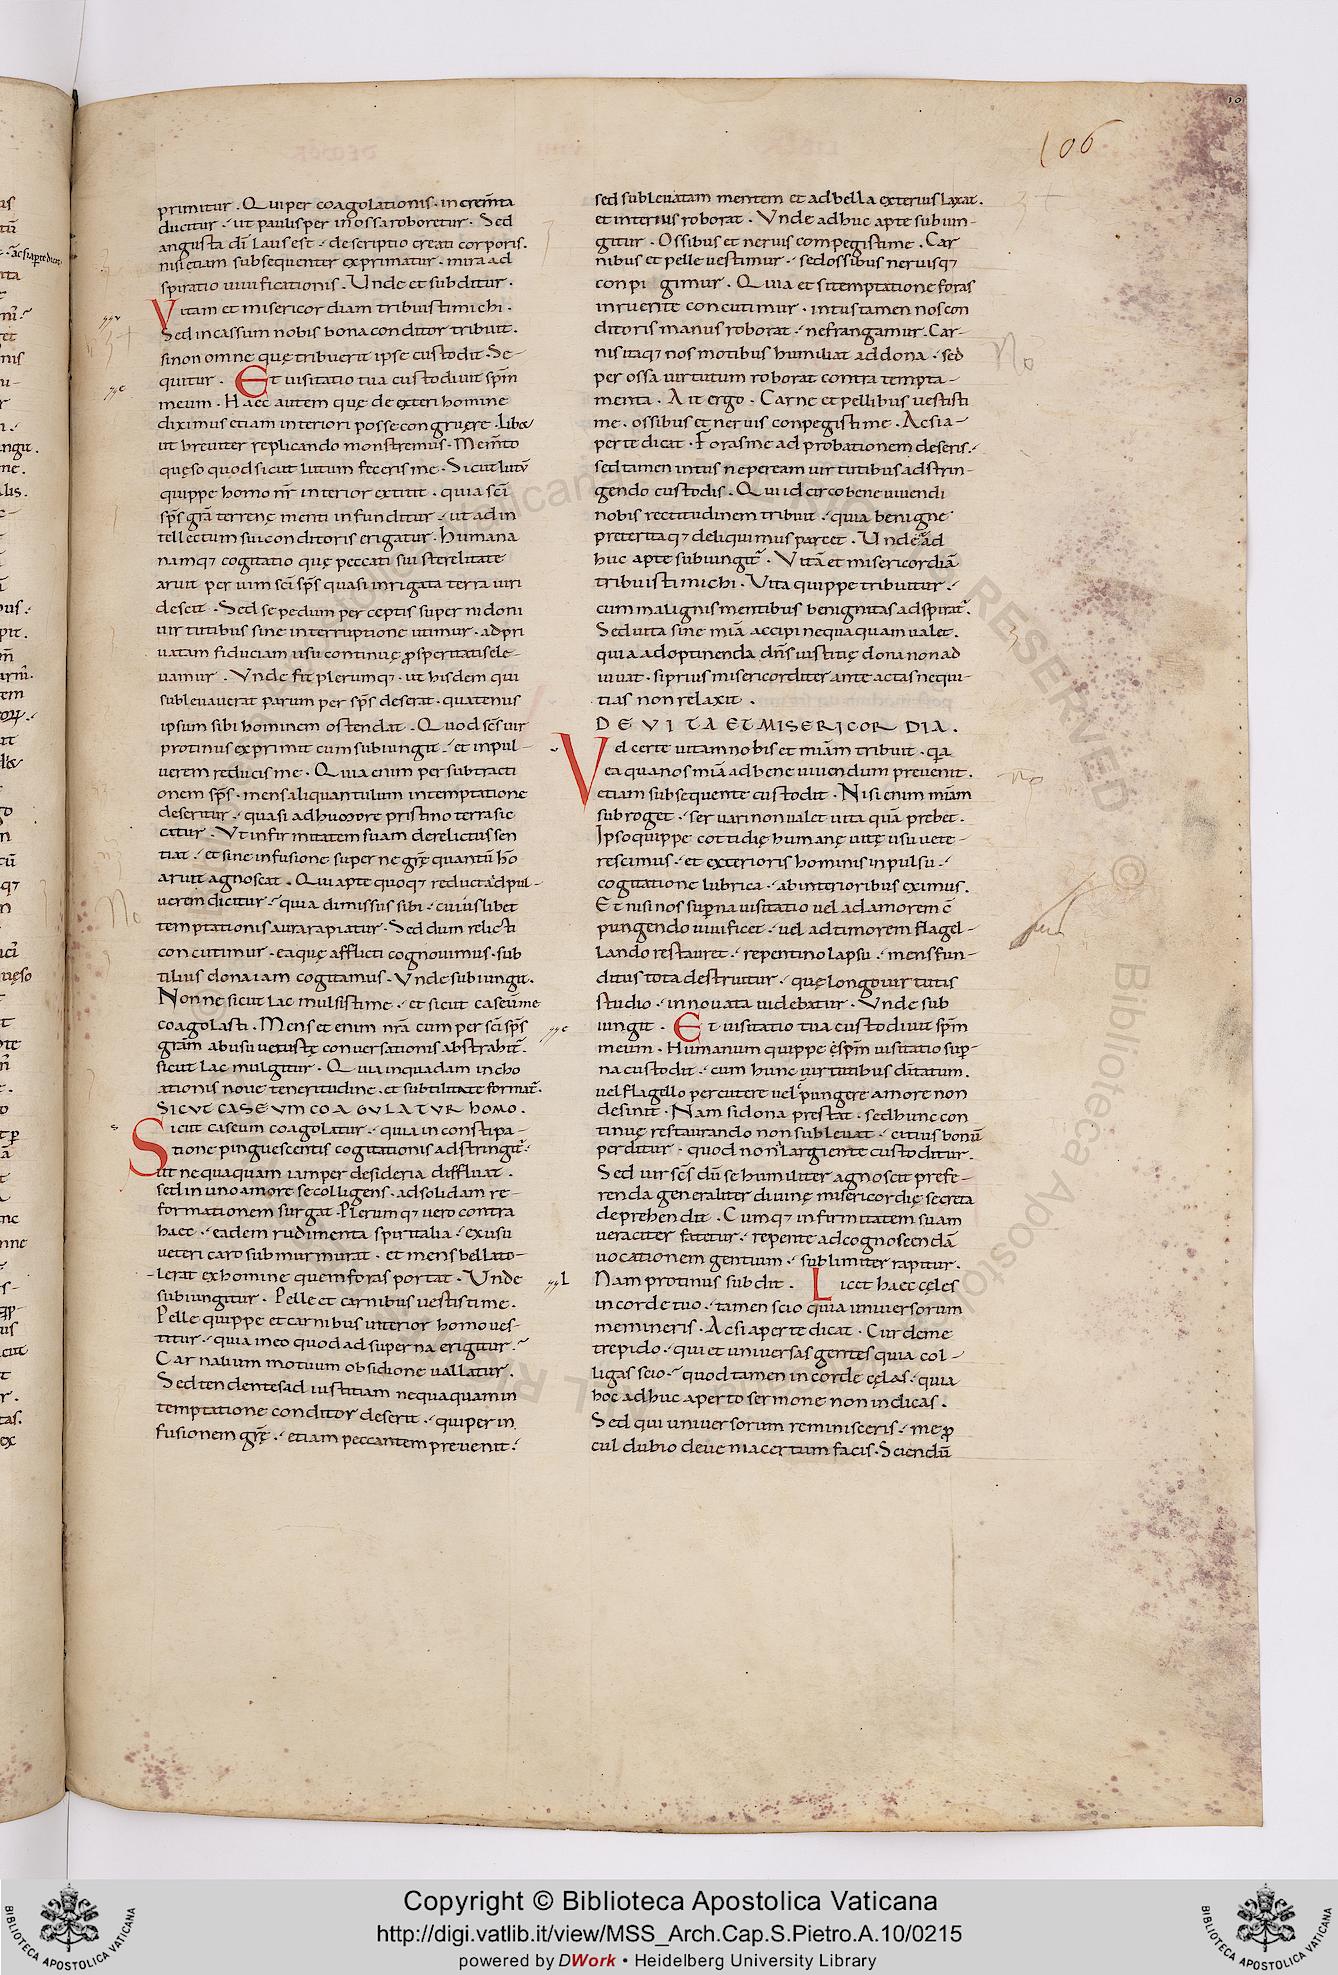 106
primitur . Qui per coagolationis . in crem̄ta
ducitur . ut paulisper in ossa roboretur . Sed
angusta dī laus est . descriptio creati corporis .
nisi etiam subsequenter exprimatur . mira ad
spiratio uiuificationis . Unde et subditur .
Vitam et misericordiam tribuisti michi .
Sed incassum nobis bona conditor tribuit .
si non omne quę tribuerit ipse custodit . Se-
quitur . Et uisitatio tua custodiuit spm̄
meum . Haec autem quę de exteri homine
diximus etiam interiori posse congruere . Lib&
ut breuiter replicando monstremus . Mem̄to
quęso quod sicut lutum feceris me . Sicut lutū
quippe homo nr̄ interior extitit . quia scī
sp̄s grā terrenę menti infunditur . ut ad in
tellectum sui conditoris erigatur . Humana
namq; cogitatio quę peccati sui sterelitate
aruit per uim scī sp̄s quasi inrigata terra uiri
descit . Sed sepe dum perceptis superni doni
uirtutibus sine interruptione utimur . ad pri
uatam fiduciam usu continuę p̱speritatis ele-
uamur . Vnde fit plerumq; . ut hisdem qui
subleuauerat parum per sp̄s deserat . quatenus
ipsum sibi hominem ostendat . Quod sc̄s uir
protinus exprimit cum subiungit . et in pul-
uerem reducis me . Quia enim per subtracti
onem sp̄s . mens aliquantulum in temptatione
deseritur . quasi ad humore pristino terra sic
catur . Vt infirmitatem suam derelictus sen
tiat . et sine infusione supernę grę̄ quantū hō
aruit agnoscat . Qui apte quoq; reducta ad pul-
uerem dicitur . quia dimissus sibi . cuiuslibet
temptationis aura rapiatur . Sed dum relicti
concutimur . eaquę afflicti cognouimus . sub
tilius dona iam cogitamus . Vnde subiungit .
Nonne sicut lac mulsisti me . et sicut caseū me
coagolasti . Mens et enim nrā cum per scī sp̄s
gram̄ ab usu uetustę conuersationis abstrahit̄ .
sicut lac mulgitur . Quia in quadam incho
ationis noue teneritudine . et subtilitate format̄ .
SICUT CASEUM COAGULATUR HOMO .
Sicut caseum coagolatur . quia in constipa-
tione pinguescentis cogitationis adstringit̄ .
ut nequaquam iam per desideria diffluat .
sed in uno amore se colligens . ad solidam re-
formationem surgat . Plerumq; uero contra
haec . eadem rudimenta spiritalia . ex usu
ueteri caro submurmurat . et mens bellato-
lerat ex homine quem foras portat . Unde
subiungitur . Pelle et carnibus uestisti me .
Pelle quippe et carnibus interior homo ues-
titur . quia in eo quod ad superna erigitur .
Carnalium motuum obsidione uallatur .
Sed tendentes ad iustitiam nequaquam in
temptatione conditor deserit . qui per in
fusionem grę̄ . etiam peccantem preuenit .
sed subleuatam mentem et ad bella exterius laxat .
et interius roborat . Vnde adhuc apte subiun-
gitur . Ossibus et neruis compegisti me . Car
nibus et pelle uestimur . sed ossibus neruisq;
conpi gimur . Quia et si temptatione foras
inruente concutimur . intus tamen nos con
ditoris manus roborat . ne frangamur . Car-
nis itaq; nos motibus humiliat ad dona . sed
per ossa uirtutum roborat contra tempta-
menta . Ait ergo . Carne et pellibus uestisti
me . ossibus et neruis conpegisti me . Ac si a-
perte dicat . Foras me ad probationem deseris .
sed tamen intus ne peream uirtutibus adstrin-
gendo custodis . Qui idcirco bene uiuendi
nobis rectitudinem tribuit . quia benigne
preterita q; deliquimus parcet . Unde & ad
huc apte subiungit̄ . Vitā et misericordiā
tribuisti michi . Vita quippe tribuitur .
cum malignis mentibus benignitas adspirat̄ .
Sed uita sine miā accipi nequaquam ualet .
quia ad optinenda dn̄s iustitię dona non ad
iuuat . si prius misericorditer ante actas nequi-
tias non relaxit .
DE VITA ET MISERICORDIA .
Vel certe uitam nobis et miam̄ tribuit . qa
ea qua nos miā ad bene uiuendum preuenit .
etiam subsequente custodit . Nisi enim miam̄
subroget . seruari non ualet uita quā prebet .
Ipso quippe cottidię humanę uitę usu uete-
rescimus . et exterioris hominis inpulsu .
cogitatione lubrica . ab interioribus eximus .
Et nisi nos suꝑna uisitatio uel ad amorem c̄
pungendo uiuificet . uel ad timorem flagel-
lando restauret . repentino lapsu . mens fun-
ditus tota destruitur . quę longo uirtutis
studio . innouata uidebatur . Vnde sub
iungit . Et uisitatio tua custodiuit spm̄
meum . Humanum quippe spm̄ uisitatio suꝑ-
na custodit . cum hunc uirtutibus ditatum .
uel flagello percutere uel pungere amore non
desinit . Nam si dona prestat . sed hunc con
tinuę restaurando non subleuat . citius bonū
perditur . quod non largiente custoditur .
Sed uir sc̄s dū se humiliter agnoscit prefe-
renda generaliter diuinę misericordię secreta
deprehendit . Cumq; infirmitatem suam
ueraciter fatetur . repente ad cognoscendā
uocationem gentium . sublimiter rapitur .
Nam protinus subdit . Licet haec cęles
in corde tuo . tamen scio quia uniuersorum
memineris . Ac si aperte dicat . Cur de me
trepido . qui et uniuersas gentes quia col-
ligas scio . quod tamen in corde cęlas . quia
hoc adhuc aperto sermone non indicas .
Sed qui uniuersorum reminisceris . me ꝓ
cul dubio de uenia certum facis . Sciendū
Copyright © Biblioteca Apostolica Vaticana
http://digi.vatlib.it/view/MSS_Arch.Cap.S.Pietro.A.10/0215
powered by DWork • Heidelberg University Library